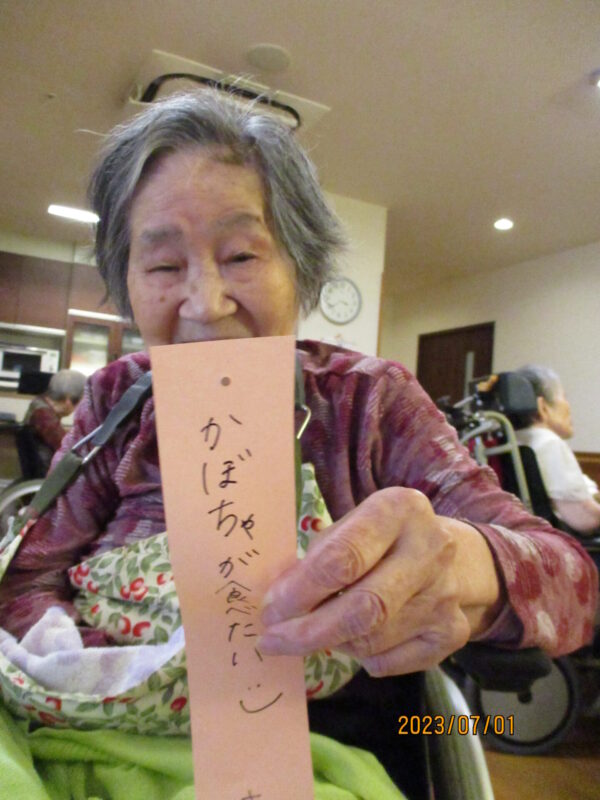 かぼちゃが食べたい:)
2023/07/01